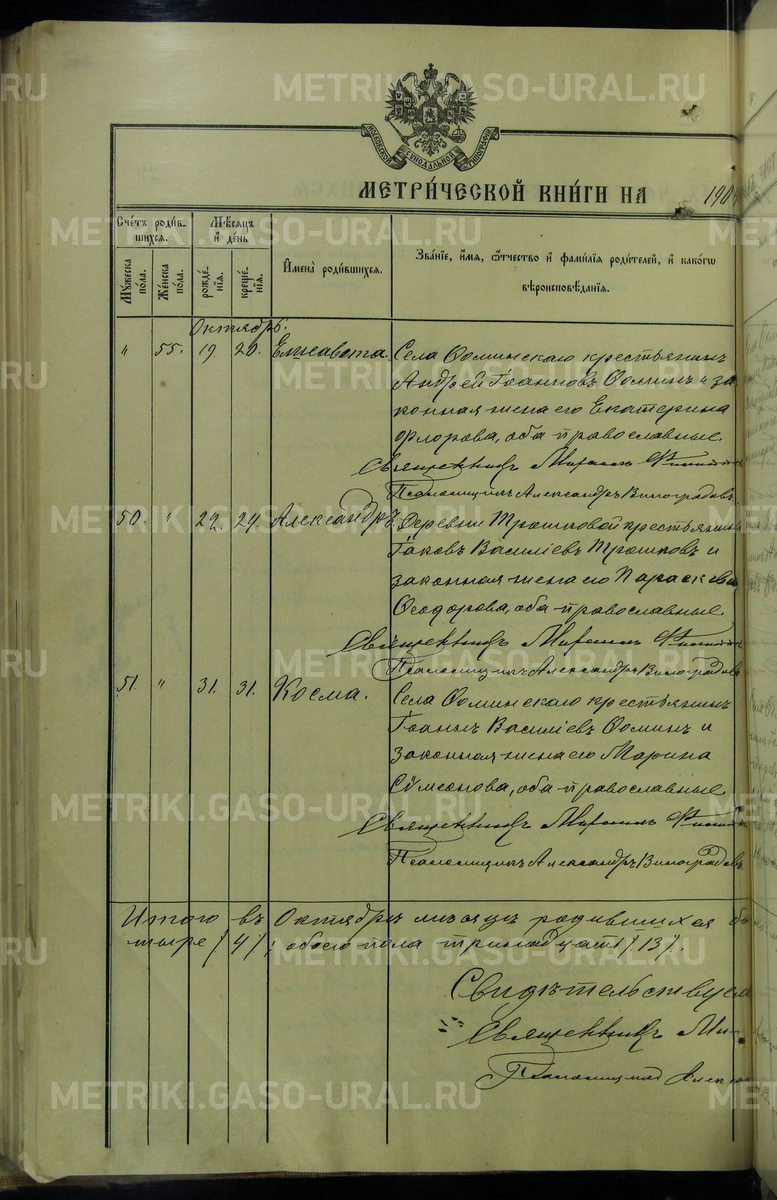 METRIKI.GASO-URAL.RU
МОСКОВСКОЙ СѴНОДАЛЬНОЙ ТИПОГРАФІИ
МЕТРИ́ЧЕСКОЙ КНИ́ГИ НА 190
Сче́тъ роди́в-шихся.
Мѣ́сяцъ и҆ де́нь
И҆мена̀ роди́вшихся.
Зва́нїе, и҆́мя, ѻ҆́тчество и҆ фами́лїя роди́телей, и҆ како́гѡ вѣроисповѣ́данїя.
Мꙋ́жеска по́ла.
Же́нска по́ла.
рожде́-нїя.
креще́-нїя.
Октябрь.
" 55. 19 20. Елисавета. Села Ѳоминскаго крестьянинъ
Андрей Іоанновъ Ѳоминъ и за
конная жена его Екатерина
Флорова, оба православные.
Священникъ
Псаломщикъ Александръ Виноградовъ.
50. " 22 24. Александръ. Деревни Трошковой крестьянинъ
Іаковъ Василіевъ Трошковъ и
законная жена его Параскева
Ѳеодорова, оба православные.
Священникъ
Псаломщикъ Александръ Виноградовъ
51. " 31. 31. Косма. Села Ѳоминскаго крестьянинъ
Іоаннъ Василіевъ Ѳоминъ и
законная жена его Марина
Сѵмеонова, оба православные.
Священникъ
Псаломщикъ Александръ Виноградовъ
Итого въ Октябрѣ мѣсяцѣ родившихся
тыре /4/; обоего пола тринадцать /13/.
Свидѣтельствуем
Священникъ Ми-
Псаломщикъ Алекса